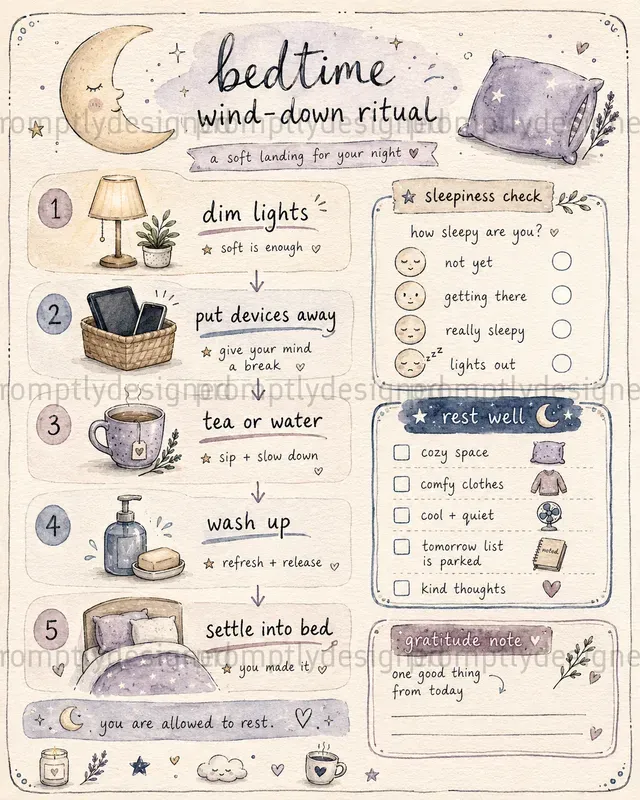 bedtime
wind-down ritual
a soft landing for your night
1
dim lights
soft is enough
2
put devices away
give your mind
a break
3
tea or water
sip + slow down
4
wash up
refresh + release
5
settle into bed
you made it
you are allowed to rest.
sleepiness check
how sleepy are you?
not yet
getting there
really sleepy
zzz
lights out
rest well
cozy space
comfy clothes
cool + quiet
tomorrow list
is parked
noted.
kind thoughts
gratitude note
one good thing
from today
promptlydesigned